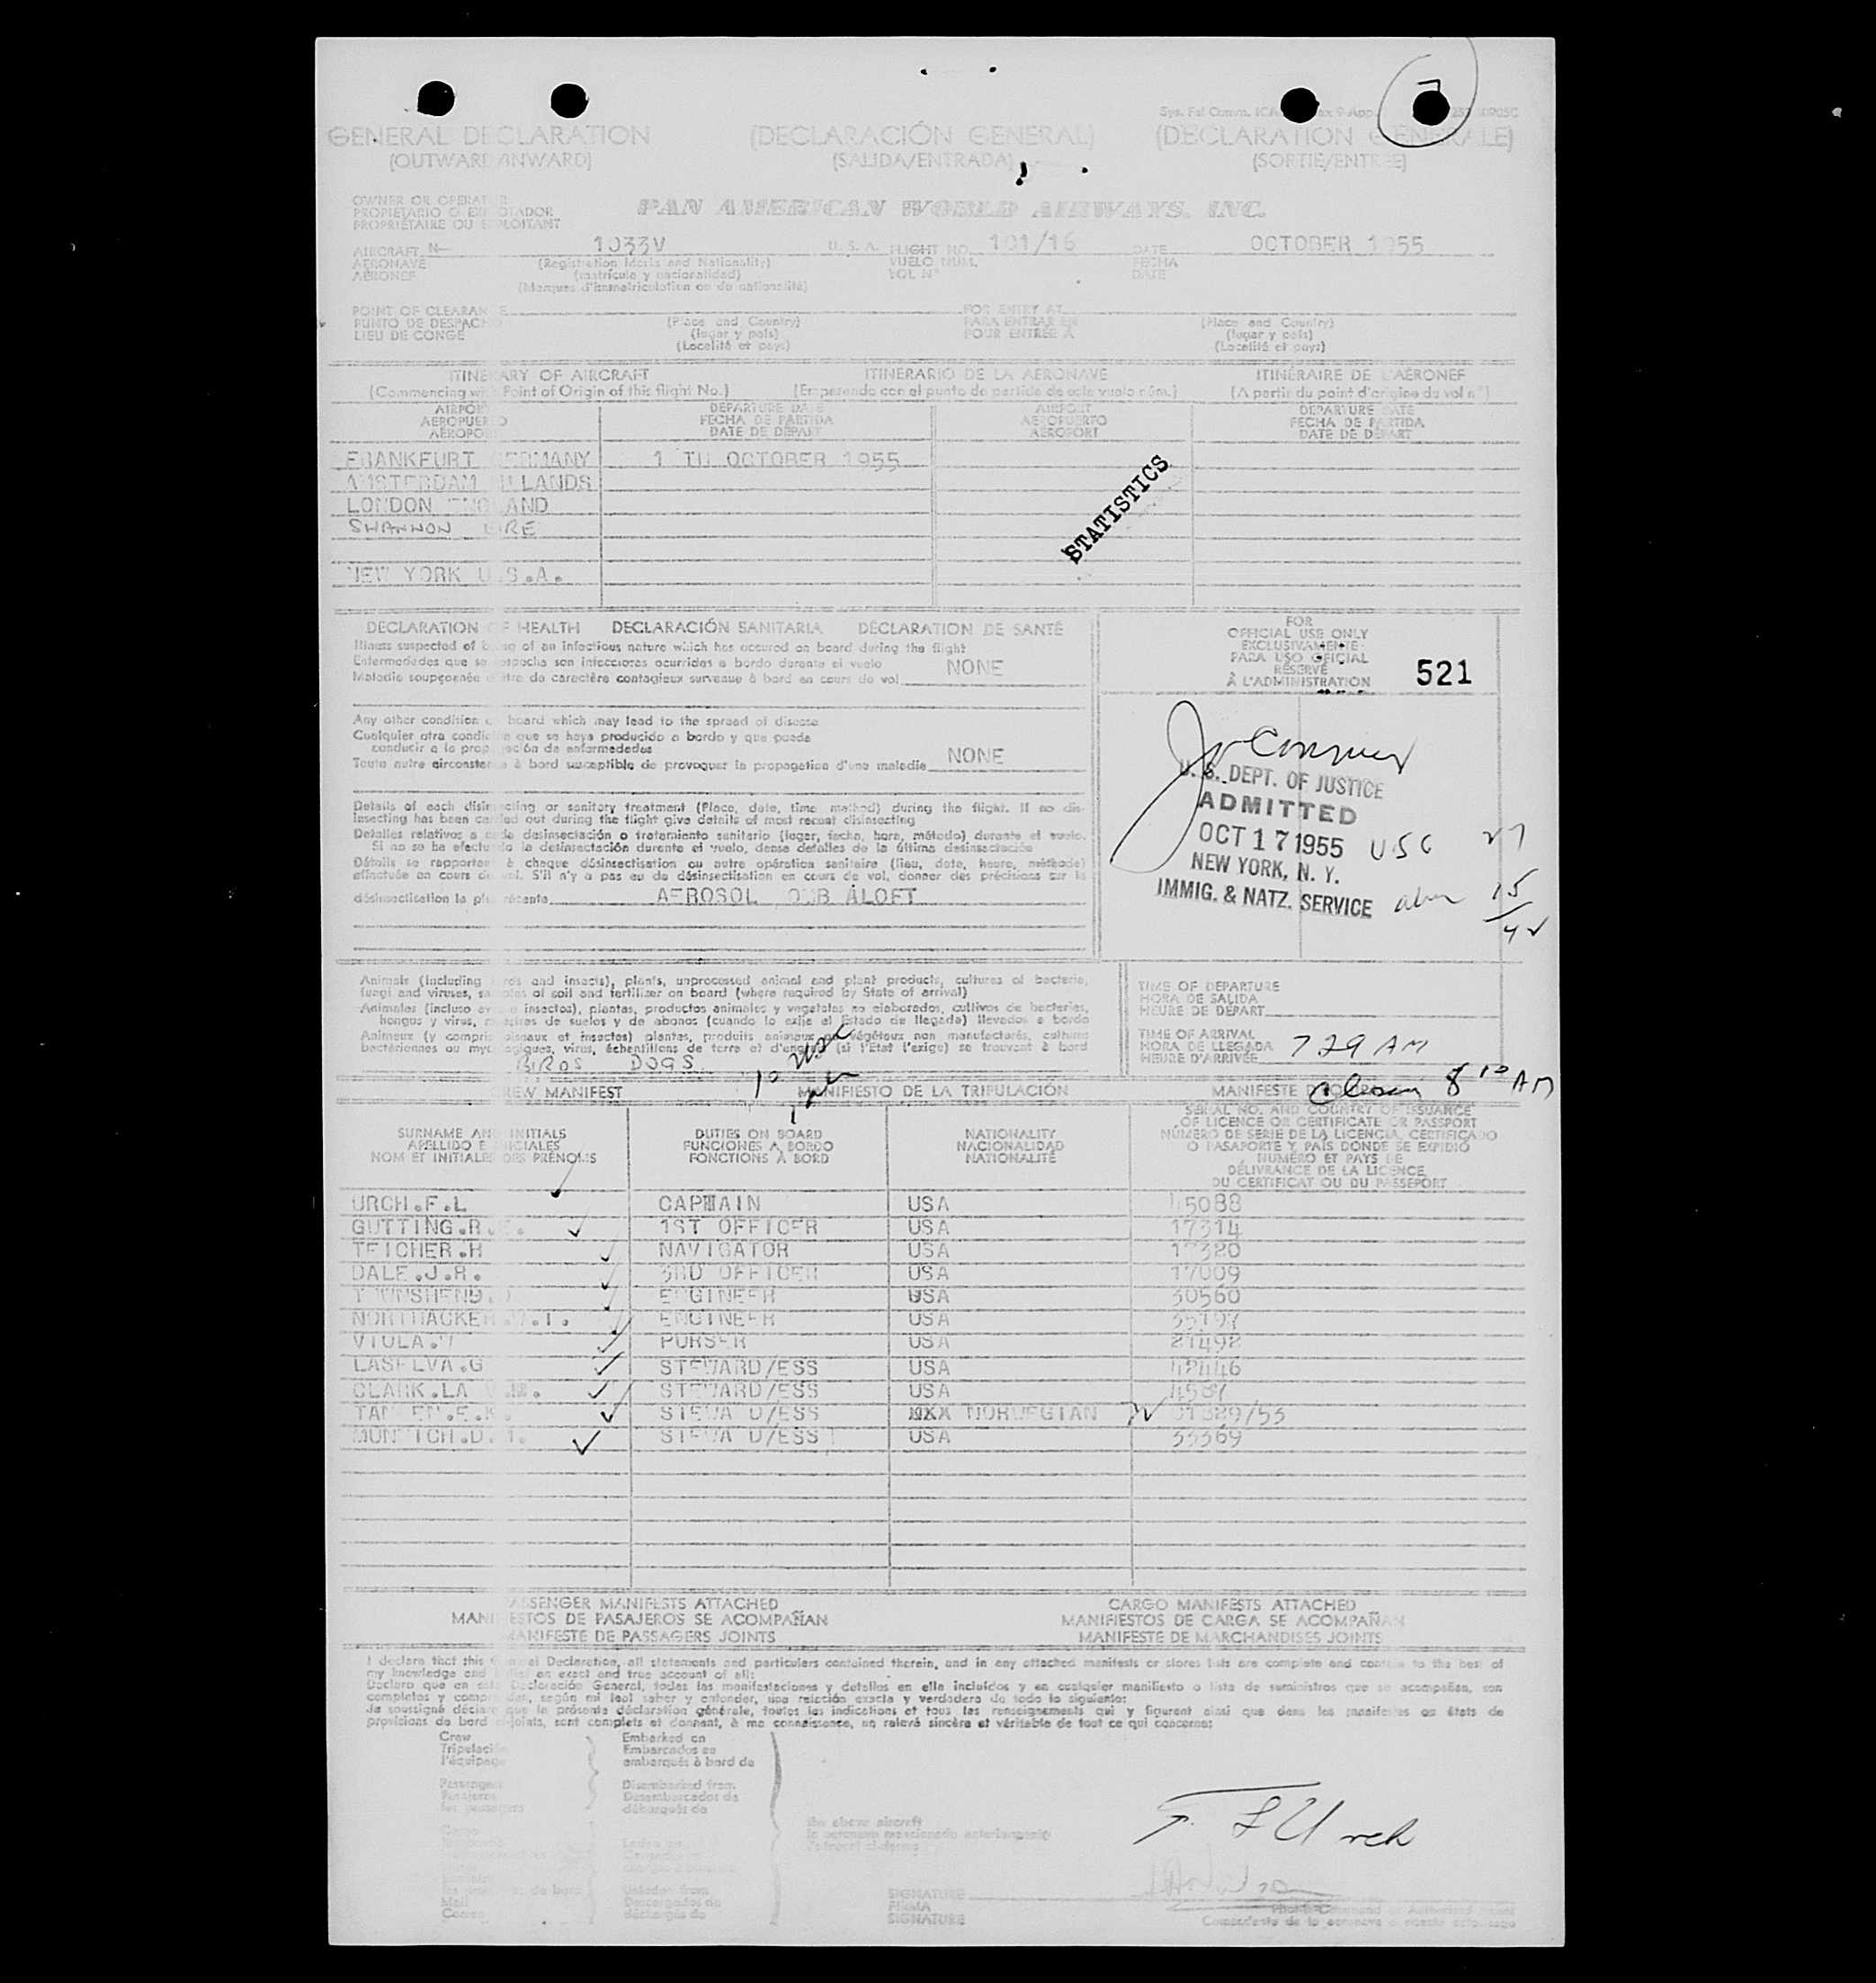 GENERAL DECLARATION (DECLARACIÓN GENERAL) (DECLARATION GENERALE)
(OUTWARD/INWARD) (SALIDA/ENTRADA) (SORTIE/ENTREE)
OWNER OR OPERATOR
PROPIETARIO O EXPLOTADOR
PROPRIÉTAIRE OU EXPLOITANT
PAN AMERICAN WORLD AIRWAYS, INC.
AIRCRAFT N— 1033V U. S. A. FLIGHT NO. 101/16 DATE OCTOBER 1955
AERONAVE (Registration Marks and Nationality) VUELO NUM. FECHA
AÉRONEF (matrícula y nacionalidad) VOL Nº DATE
(Marques d'immatriculation ou de nationalité)
POINT OF CLEARANCE FOR ENTRY AT
PUNTO DE DESPACHO (Place and Country) PARA ENTRAR EN (Place and Country)
LIEU DE CONGÉ (lugar y país) POUR ENTRÉE À (lugar y país)
(Localité et pays) (Localité et pays)
ITINERARY OF AIRCRAFT ITINERARIO DE LA AERONAVE ITINÉRAIRE DE L'AÉRONEF
(Commencing with Point of Origin of this flight No.) (Empezando con el punto de partida de este vuelo núm.) (A partir du point d'origine du vol nº)
AIRPORT DEPARTURE DATE AIRPORT DEPARTURE DATE
AEROPUERTO FECHA DE PARTIDA AEROPUERTO FECHA DE PARTIDA
AÉROPORT DATE DE DÉPART AÉROPORT DATE DE DÉPART
FRANKFURT GERMANY 1 TH OCTOBER 1955
AMSTERDAM LANDS
LONDON ENGLAND
SHANNON EIRE
NEW YORK U.S.A.
STATISTICS
DECLARATION OF HEALTH DECLARACIÓN SANITARIA DÉCLARATION DE SANTÉ
Illness suspected of being of an infectious nature which has occured on board during the flight
Enfermedades que se sospecha son infecciosas ocurridas a bordo durante el vuelo NONE
Maladie soupçonnée d'être de caractère contagieux survenue à bord en cours de vol
FOR
OFFICIAL USE ONLY
EXCLUSIVAMENTE
PARA USO OFICIAL
RÉSERVÉ
À L'ADMINISTRATION
521
Any other condition on board which may lead to the spread of disease
Cualquier otra condición que se haya producido a bordo y que pueda
conducir a la propagación de enfermedades
Toute autre circonstance à bord susceptible de provoquer la propagation d'une maladie NONE
Details of each disinsecting or sanitary treatment (Place, date, time, method) during the flight. If no dis-
insecting has been carried out during the flight give details of most recent disinsecting
Detalles relativos a cada desinsectación o tratamiento sanitario (lugar, fecha, hora, método) durante el vuelo.
Si no se ha efectuado la desinsectación durante el vuelo, dense detalles de la última desinsectación
Détails se rapportant à chaque désinsectisation ou autre opération sanitaire (lieu, date, heure, méthode)
effectuée en cours de vol. S'il n'y a pas eu de désinsectisation en cours de vol, donner des précisions sur la
désinsectisation la plus récente AEROSOL BOMB ALOFT
U. S. DEPT. OF JUSTICE
ADMITTED
OCT 17 1955 USC 27
NEW YORK, N. Y.
IMMIG. & NATZ. SERVICE alien 15
42
Animals (including birds and insects), plants, unprocessed animal and plant products, cultures of bacteria,
fungi and viruses, samples of soil and fertilizer on board (where required by State of arrival)
Animales (incluso aves e insectos), plantas, productos animales y vegetales no elaborados, cultivos de bacterias,
hongos y virus, muestras de suelos y de abonos (cuando lo exija el Estado de llegada) llevados a bordo
Animaux (y compris oiseaux et insectes) plantes, produits animaux ou végétaux non manufacturés, cultures
bactériennes ou mycologiques, virus, échantillons de terre et d'engrais (si l'Etat l'exige) se trouvant à bord
BIRDS DOGS
TIME OF DEPARTURE
HORA DE SALIDA
HEURE DE DÉPART
TIME OF ARRIVAL
HORA DE LLEGADA 7 29 AM
HEURE D'ARRIVÉE
8 10 AM
CREW MANIFEST MANIFIESTO DE LA TRIPULACIÓN MANIFESTE
SURNAME AND INITIALS DUTIES ON BOARD NATIONALITY
APELLIDO E INICIALES FUNCIONES A BORDO NACIONALIDAD
NOM ET INITIALES DES PRÉNOMS FONCTIONS À BORD NATIONALITÉ
SERIAL NO. AND COUNTRY OF ISSUANCE
OF LICENCE OR CERTIFICATE OR PASSPORT
NÚMERO DE SERIE DE LA LICENCIA, CERTIFICADO
O PASAPORTE Y PAÍS DONDE SE EXPIDIÓ
NUMÉRO ET PAYS DE
DÉLIVRANCE DE LA LICENCE,
DU CERTIFICAT OU DU PASSEPORT
URCH.F.L CAPTAIN USA 45088
GUTTING.R. 1ST OFFICER USA 17314
TEICHER.H NAVIGATOR USA 17320
DALE.J.R. 3RD OFFICER USA 17009
TOWNSHEND. ENGINEER USA 30560
ENGINEER USA
VIOLA.V PURSER USA 21492
LASELVA.G STEWARD/ESS USA 42446
CLARK.LA STEWARD/ESS USA 4587
STEWARD/ESS NORWEGIAN
STEWARD/ESS USA 33369
PASSENGER MANIFESTS ATTACHED CARGO MANIFESTS ATTACHED
MANIFIESTOS DE PASAJEROS SE ACOMPAÑAN MANIFIESTOS DE CARGA SE ACOMPAÑAN
MANIFESTE DE PASSAGERS JOINTS MANIFESTE DE MARCHANDISES JOINTS
I declare that this General Declaration, all statements and particulars contained therein, and in any attached manifests or stores lists are complete and contain to the best of
my knowledge and belief an exact and true account of all:
Declaro que en esta Declaración General, todas las manifestaciones y detalles en ella incluidos y en cualquier manifiesto o lista de suministros que se acompañan, son
completos y comprenden, según mi leal saber y entender, una relación exacta y verdadera de todo lo siguiente:
Je soussigné déclare que la présente déclaration générale, toutes les indications et tous les renseignements qui y figurent ainsi que dans les manifestes ou états de
provisions de bord ci-joints, sont complets et donnent, à ma connaissance, un relevé sincère et véritable de tout ce qui concerne:
Crew Embarked on
Tripulación Embarcados en
l'équipage embarqués à bord de
Passengers Disembarked from
Pasajeros Desembarcados de
les passagers débarqués de
the above aircraft
F. L Urch
Mail
Correo
SIGNATURE
FIRMA
SIGNATURE